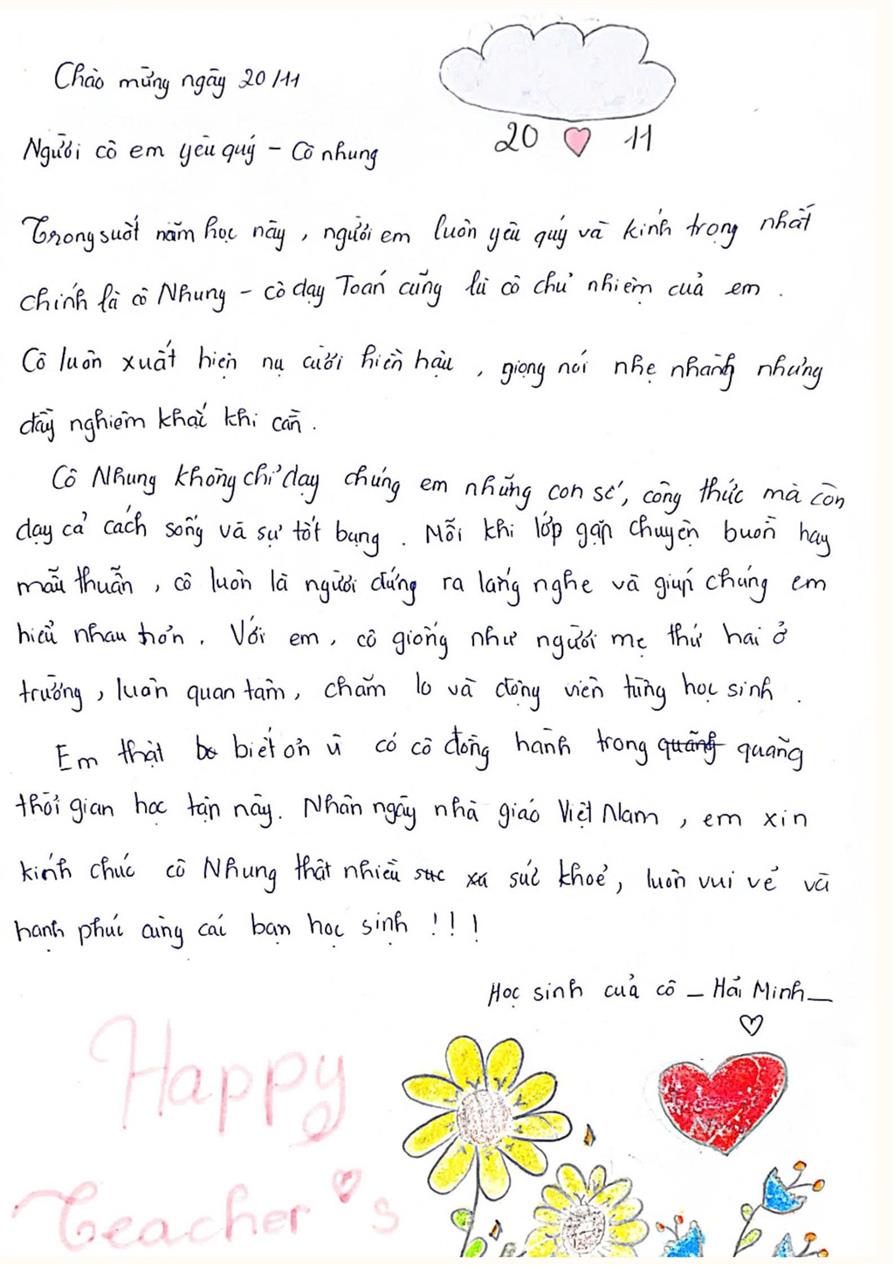 Chào mừng ngày 20/11
20 11
Người cô em yêu quý - Cô nhung
Trong suốt năm học này, người em luôn yêu quý và kính trọng nhất
chính là cô Nhung - cô dạy Toán cũng là cô chủ nhiệm của em.
Cô luôn xuất hiện nụ cười hiền hậu, giọng nói nhẹ nhàng nhưng
đầy nghiêm khắc khi cần.
Cô Nhung không chỉ dạy chúng em những con số, công thức mà còn
dạy cả cách sống và sự tốt bụng. Mỗi khi lớp gặp chuyện buồn hay
mâu thuẫn, cô luôn là người đứng ra lắng nghe và giúp chúng em
hiểu nhau hơn. Với em, cô giống như người mẹ thứ hai ở
trường, luôn quan tâm, chăm lo và động viên từng học sinh.
Em thật biết ơn vì có cô đồng hành trong quãng quãng
thời gian học tập này. Nhân ngày nhà giáo Việt Nam, em xin
kính chúc cô Nhung thật nhiều sức khoẻ, luôn vui vẻ và
hạnh phúc cùng các bạn học sinh!!!
Học sinh của cô - Hải Minh -
Happy
Teacher's